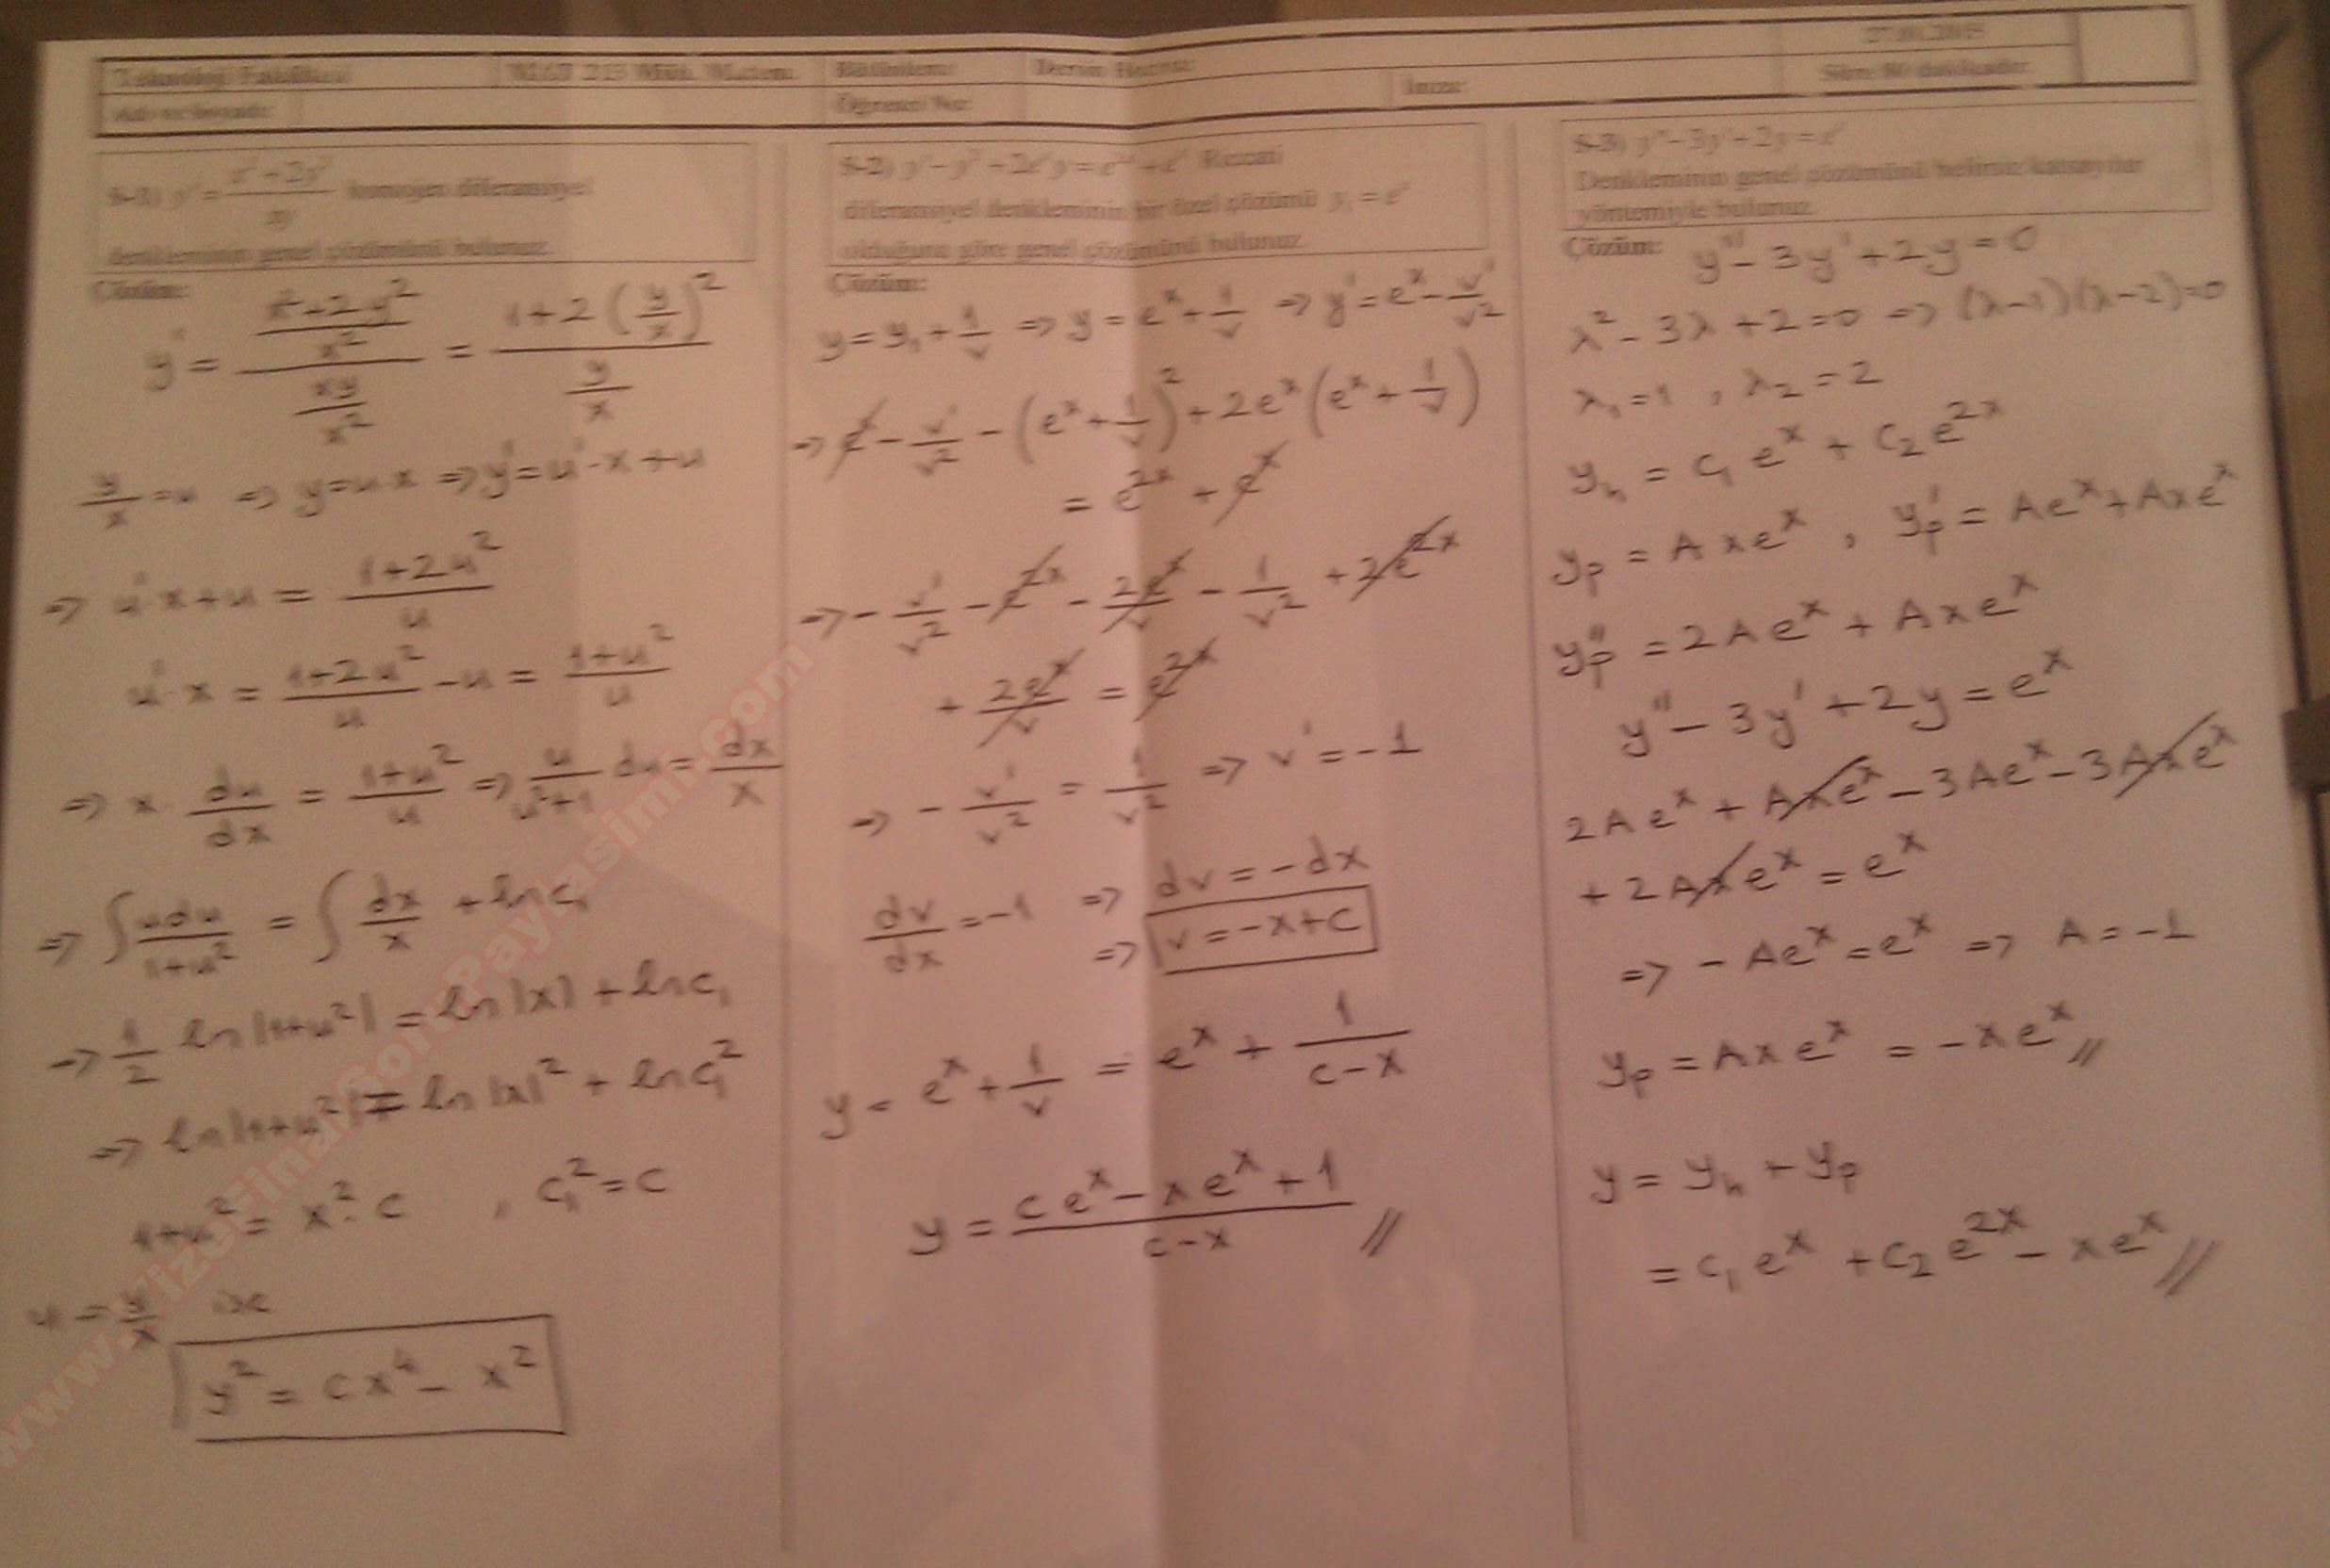 Teknoloji Fakültesi MAT 213 Müh. Matem. Bölüm Dersin Hocası: 27.01.2015
Adı ve Soyadı: Öğrenci No: İmza: Süre 80 dakikadır.
S-1) y' = (x²+2y²)/(xy) homojen diferansiyel
denkleminin genel çözümünü bulunuz.
Çözüm:
y' = ((x²+2y²)/x²)/((xy)/x²) = (1+2(y/x)²)/(y/x)
y/x = u ⇒ y=u·x ⇒ y'=u'·x+u
⇒ u'·x+u = (1+2u²)/u
u'·x = (1+2u²)/u - u = (1+u²)/u
⇒ x·du/dx = (1+u²)/u ⇒ u/(u²+1) du = dx/x
⇒ ∫ udu/(1+u²) = ∫ dx/x + lnc₁
⇒ 1/2 ln|1+u²| = ln|x| + lnc₁
⇒ ln|1+u²| = ln|x|² + lnc₁²
1+u² = x²·c , c₁² = c
u = y/x ise
y² = cx⁴ - x²
S-2) y' - y² + 2eˣy = e²ˣ + eˣ Riccati
diferansiyel denkleminin bir özel çözümü y₁ = eˣ
olduğuna göre genel çözümünü bulunuz.
Çözüm:
y = y₁ + 1/v ⇒ y = eˣ + 1/v ⇒ y' = eˣ - v'/v²
⇒ eˣ - v'/v² - (eˣ + 1/v)² + 2eˣ(eˣ + 1/v)
= e²ˣ + eˣ
⇒ - v'/v² - e²ˣ - 2eˣ/v - 1/v² + 2e²ˣ
+ 2eˣ/v = e²ˣ
⇒ - v'/v² = 1/v² ⇒ v' = -1
dv/dx = -1 ⇒ dv = -dx
⇒ v = -x+c
y = eˣ + 1/v = eˣ + 1/(c-x)
y = (ceˣ - xeˣ + 1)/(c-x) //
S-3) y'' - 3y' + 2y = eˣ
Denkleminin genel çözümünü belirsiz katsayılar
yöntemiyle bulunuz.
Çözüm: y'' - 3y' + 2y = 0
λ² - 3λ + 2 = 0 ⇒ (λ-1)(λ-2)=0
λ₁=1 , λ₂ = 2
yₕ = c₁eˣ + c₂e²ˣ
yₚ = Axeˣ , yₚ' = Aeˣ + Axeˣ
yₚ'' = 2Aeˣ + Axeˣ
y'' - 3y' + 2y = eˣ
2Aeˣ + Axeˣ - 3Aeˣ - 3Axeˣ
+ 2Axeˣ = eˣ
⇒ - Aeˣ = eˣ ⇒ A = -1
yₚ = Axeˣ = -xeˣ //
y = yₕ + yₚ
= c₁eˣ + c₂e²ˣ - xeˣ //
www.VizeFinalSoruPaylasimi.com